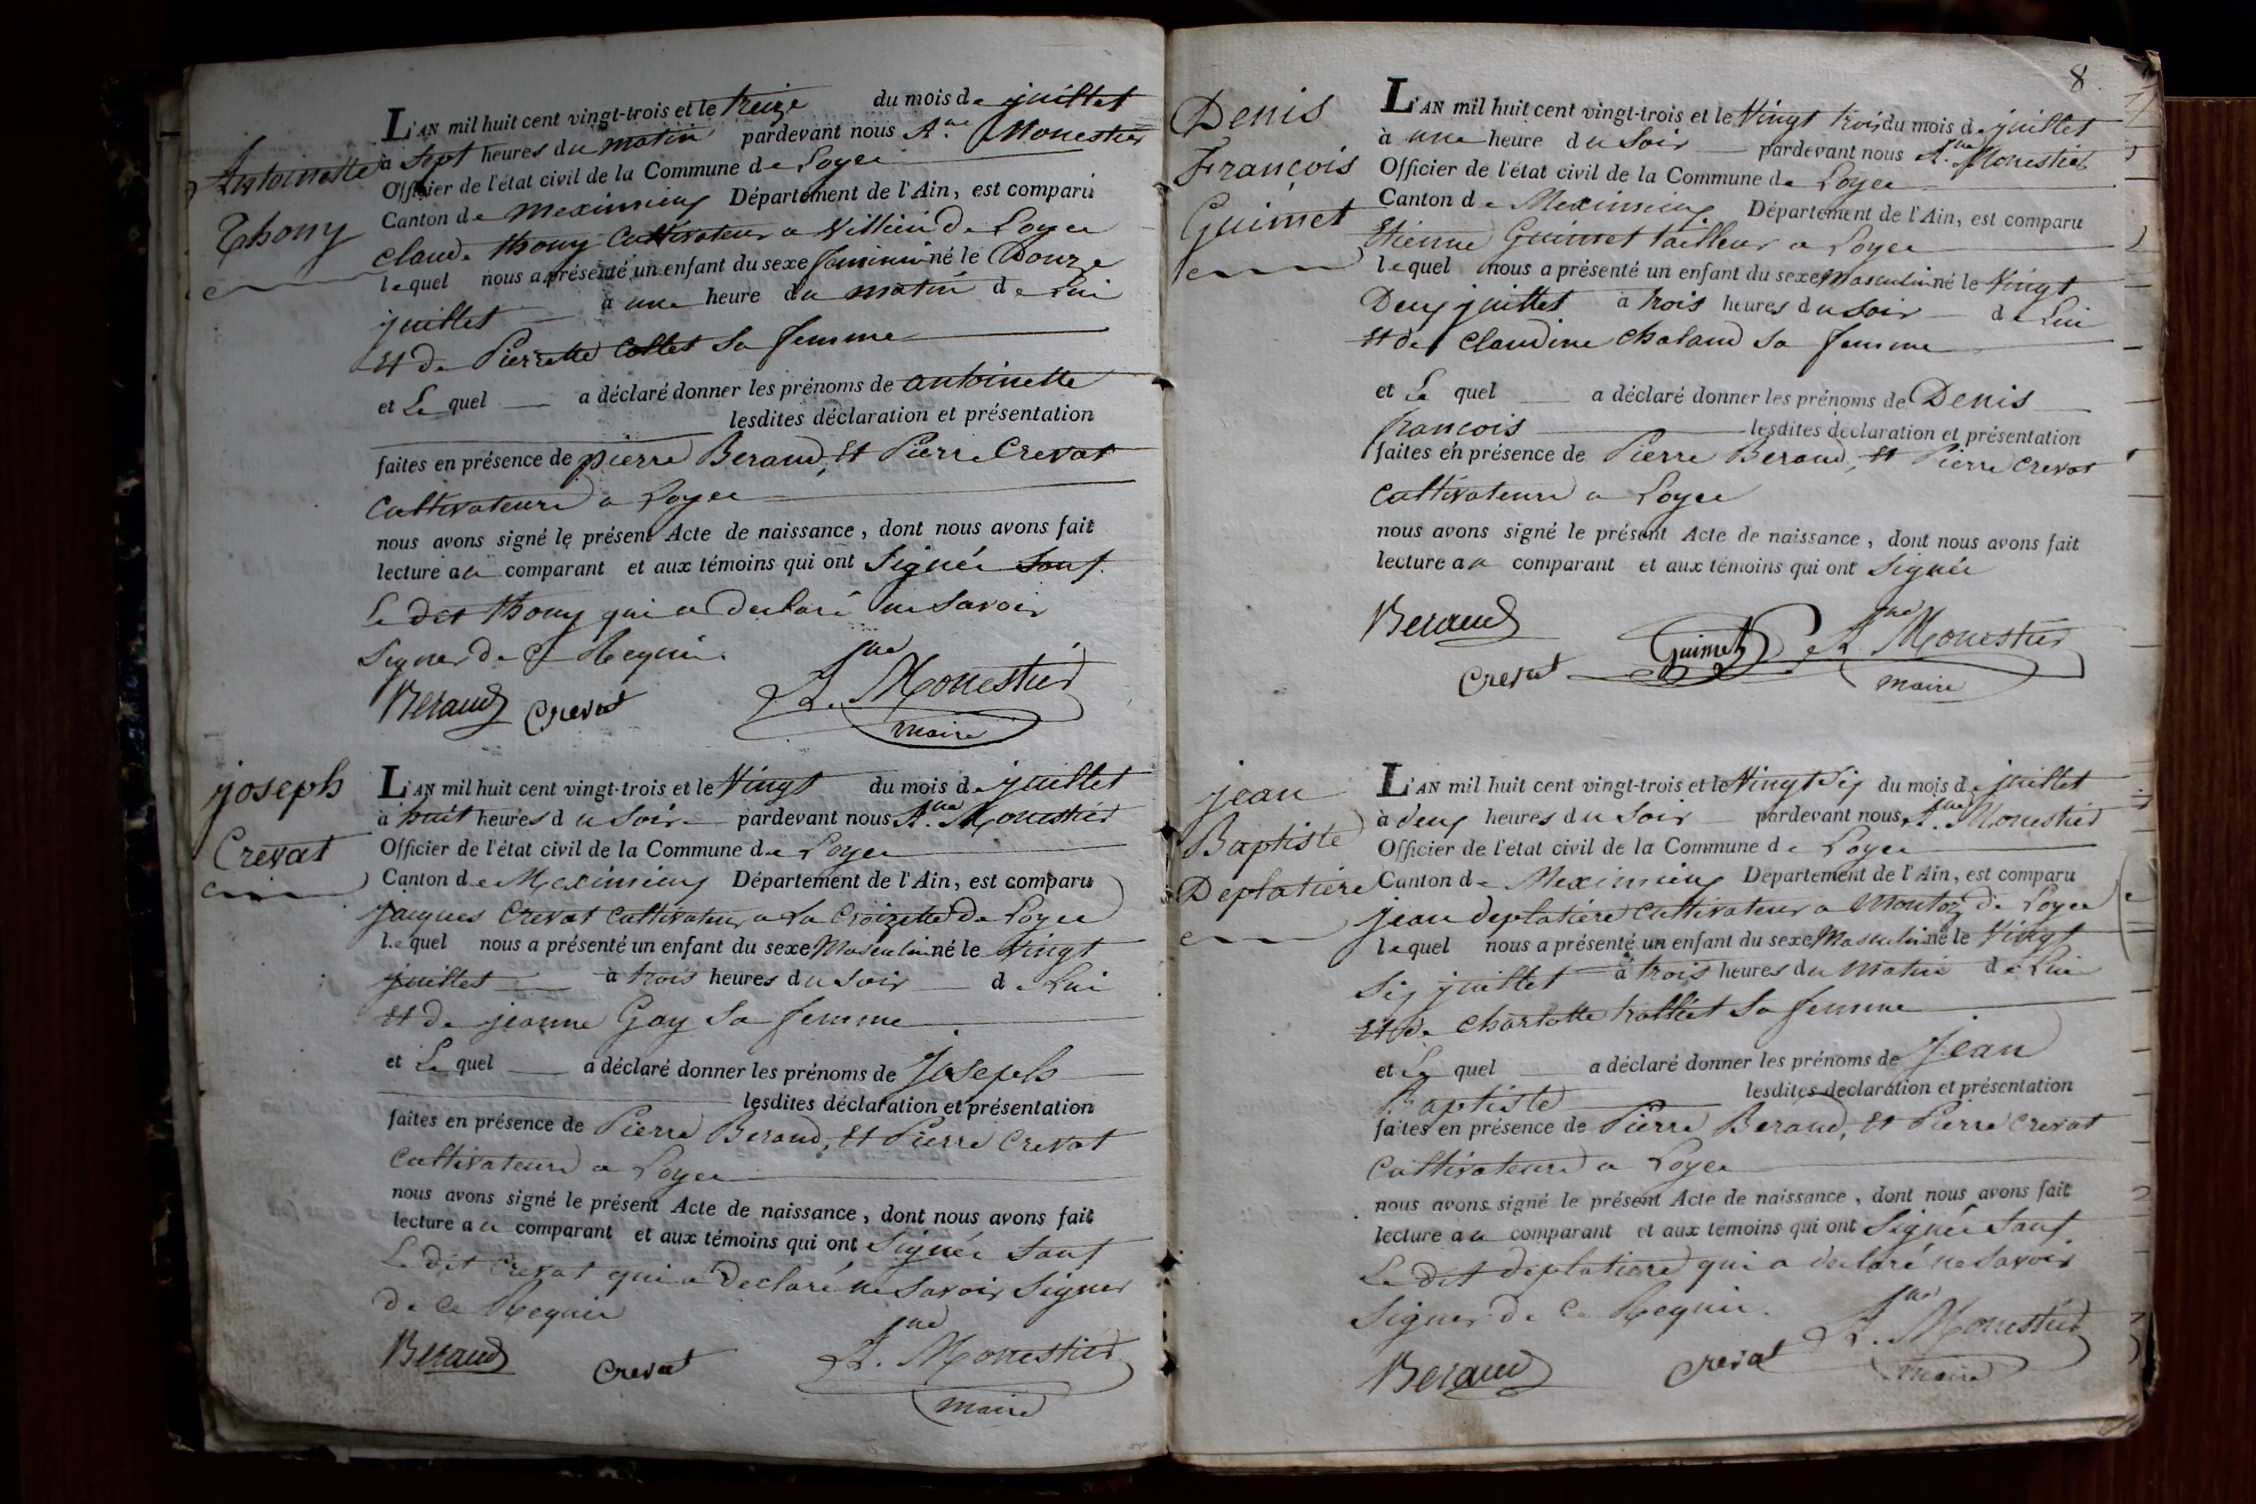 Antoinette
Thony
L'AN mil huit cent vingt-trois et le treize du mois de juillet
à sept heures du matin pardevant nous A.ne Monestier
Officier de l'état civil de la Commune de Loyes
Canton de Meximieux Département de l'Ain, est comparu
Claude thony Cultivateur a Villieu de Loyes
lequel nous a présenté un enfant du sexe feminin né le Douze
juillet à une heure du matin de Lui
Et de Pierrette Collet Sa femme
et Le quel a déclaré donner les prénoms de antoinette
lesdites déclaration et présentation
faites en présence de pierre Beraud, Et Pierre Crevat
Cultivateurs a Loyes
nous avons signé le présent Acte de naissance, dont nous avons fait
lecture au comparant et aux témoins qui ont Signés Sauf
Le dit thony qui a declaré ne Savoir
Signer de ce Requis.
Beraud Crevat A.ne Monestier
maire
joseph
Crevat
L'AN mil huit cent vingt-trois et le Vingt du mois de juillet
à huit heures du Soir pardevant nous A.ne Monestier
Officier de l'état civil de la Commune de Loyes
Canton de Meximieux Département de l'Ain, est comparu
Jacques Crevat Cultivateur a La Croizette de Loyes
lequel nous a présenté un enfant du sexe Masculin né le Vingt
juillet à trois heures du Soir de Lui
Et de jeanne Gay Sa femme
et Le quel a déclaré donner les prénoms de Joseph
lesdites déclaration et présentation
faites en présence de Pierre Beraud, Et Pierre Crevat
Cultivateurs a Loyes
nous avons signé le présent Acte de naissance, dont nous avons fait
lecture au comparant et aux témoins qui ont Signés Sauf
Le dit Crevat qui a declaré ne Savoir Signer
de ce Requis
Beraud Crevat A.ne Monestier
maire
8.
Denis
François
Guimet
L'AN mil huit cent vingt-trois et le Vingt trois du mois de juillet
à une heure du Soir pardevant nous A.ne Monestier
Officier de l'état civil de la Commune de Loyes
Canton de Meximieux Département de l'Ain, est comparu
Etienne Guimet tailleur a Loyes
lequel nous a présenté un enfant du sexe Masculin né le Vingt
Deux juillet à trois heures du Soir de Lui
Et de Claudine Chaland Sa femme
et Le quel a déclaré donner les prénoms de Denis
françois lesdites déclaration et présentation
faites en présence de Pierre Beraud, Et Pierre Crevat
Cultivateurs a Loyes
nous avons signé le présent Acte de naissance, dont nous avons fait
lecture au comparant et aux témoins qui ont Signés
Beraud Crevat Guimet A.ne Monestier
maire
jean
Baptiste
Deplatiere
L'AN mil huit cent vingt-trois et le Vingt Six du mois de juillet
à deux heures du Soir pardevant nous A.ne Monestier
Officier de l'état civil de la Commune de Loyes
Canton de Meximieux Département de l'Ain, est comparu
jean deplatiere Cultivateur a Montoz de Loyes
lequel nous a présenté un enfant du sexe Masculin né le Vingt
Six juillet à trois heures du Matin de Lui
Et de Charlotte trolliet Sa femme
et Le quel a déclaré donner les prénoms de Jean
Baptiste lesdites declaration et présentation
faites en présence de Pierre Beraud, Et Pierre Crevat
Cultivateurs a Loyes
nous avons signé le présent Acte de naissance, dont nous avons fait
lecture au comparant et aux témoins qui ont Signés Sauf
Le dit deplatiere qui a declaré ne Savoir
Signer de ce Requis.
Beraud Crevat A.ne Monestier
maire